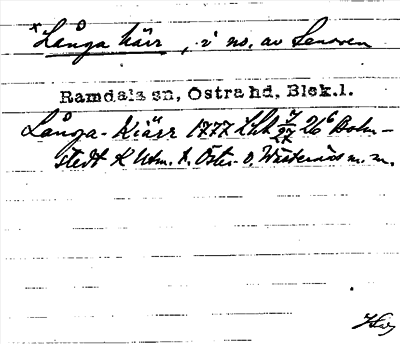 *Långa kärr, i no. av Senoren
Ramdals sn, Östra hd, Blek.l.
Långa-Kiärr 1777 Lht 26⁶ Bohm-
stedt K Utm. t. Öster- o. Wästernäs m.m.